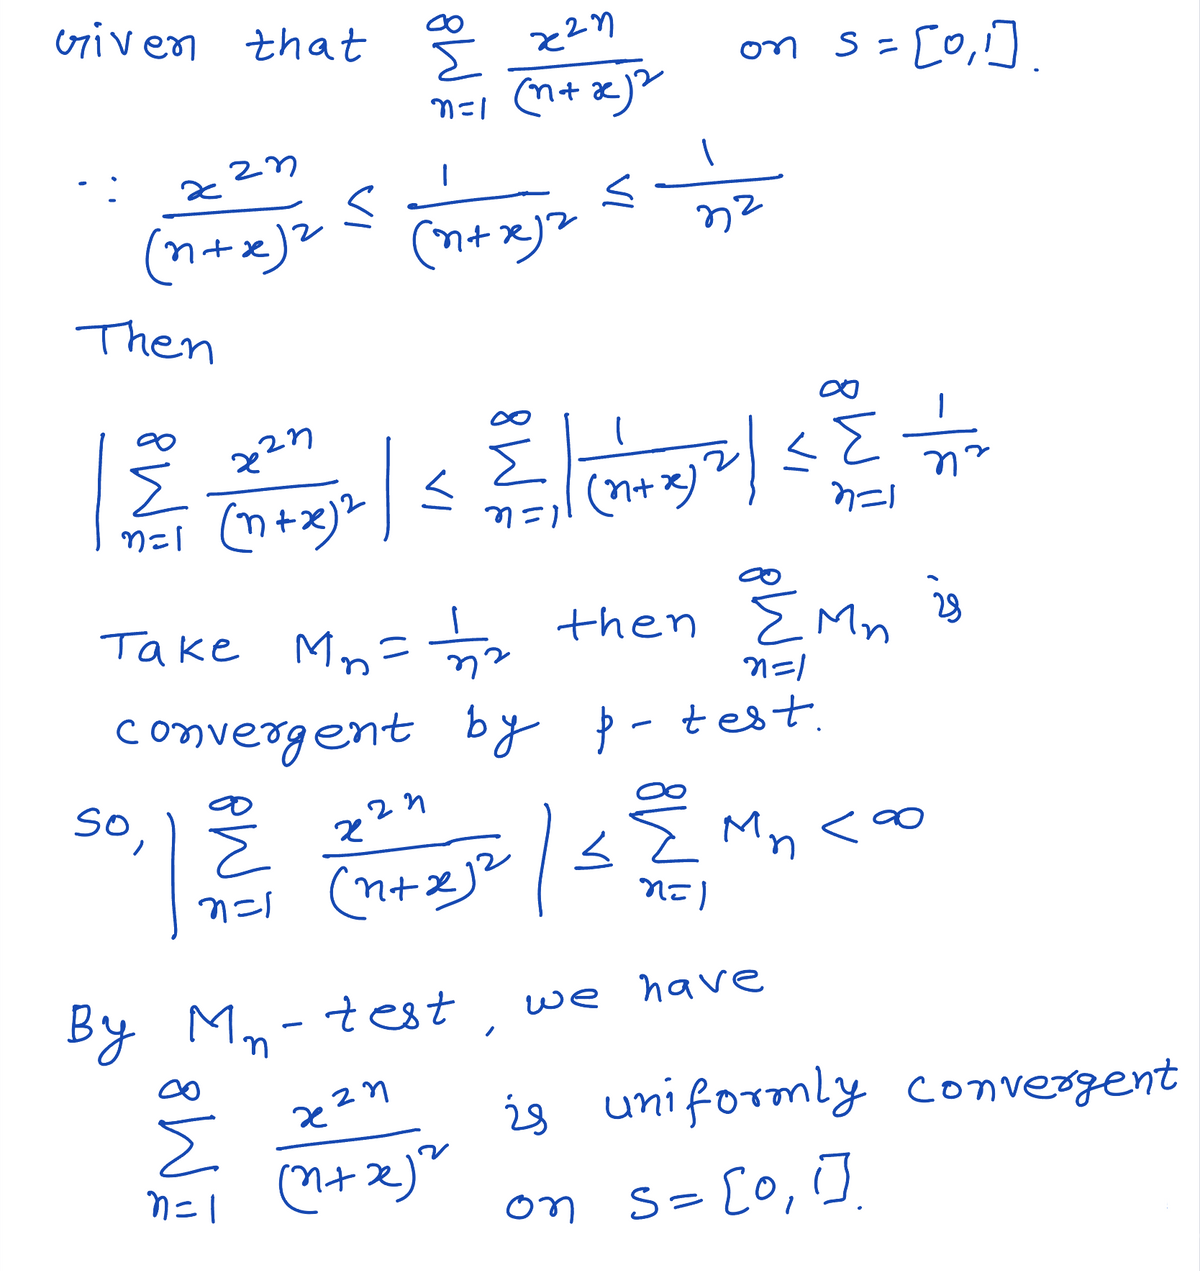 Given that $\sum_{n=1}^{\infty} \frac{x^{2n}}{(n+x)^2}$ on s = [0,1].
∵ $\frac{x^{2n}}{(n+x)^2} \leq \frac{1}{(n+x)^2} \leq \frac{1}{n^2}$
Then
$\left| \sum_{n=1}^{\infty} \frac{x^{2n}}{(n+x)^2} \right| \leq \sum_{n=1}^{\infty} \left| \frac{1}{(n+x)^2} \right| \leq \sum_{n=1}^{\infty} \frac{1}{n^2}$
Take $M_n = \frac{1}{n^2}$ then $\sum_{n=1}^{\infty} M_n$ is
convergent by p-test.
So, $\left| \sum_{n=1}^{\infty} \frac{x^{2n}}{(n+x)^2} \right| \leq \sum_{n=1}^{\infty} M_n < \infty$
By $M_n$-test, we have
$\sum_{n=1}^{\infty} \frac{x^{2n}}{(n+x)^2}$ is uniformly convergent
on S = [0,1].